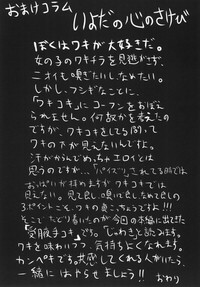 おまけコラム
いよだの心のさけび
ぼくはワキが大好きだ。
女の子のワキチラを見逃がさず、
ニオイも嗅ぎたいしなめたい。
しかし、フシギなことに、
「ワキコキ」にコーフンをおぼえ
られません。何故かを考えたの
ですが、ワキコキをしてる間って
ワキの下が見えないんですよ。
汗がからんでめっちゃエロインとは
思うのですが…「パイズリ」されてる間では
おっぱいが揉めますがワキコキでは
見えない。見て良し嗅いで良しなめて良しの
3ポイントこそ、ワキの良さっちゅうことですよ!!!
そこでたどり着いたのが今回の本編に出せた
「受腋手コキ」です。「じゅわき」と読みます。
ワキを味わいつつ、気持ちよくなれます。
カンペキです。共感してくれる人がいたら、
一緒にはやらせましょう!!
おわり